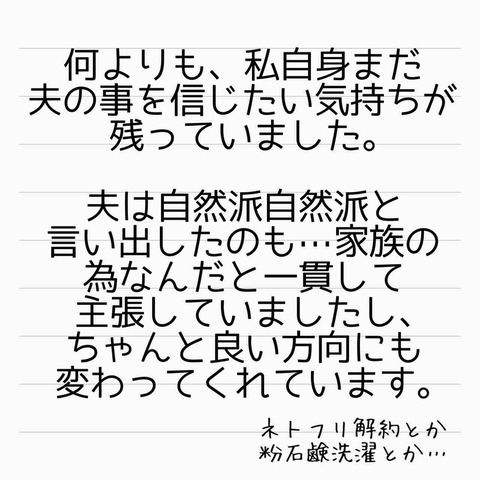 何よりも、私自身まだ
夫の事を信じたい気持ちが
残っていました。
夫は自然派自然派と
言い出したのも…家族の
為なんだと一貫して
主張していましたし、
ちゃんと良い方向にも
変わってくれています。
ネトフリ解約とか
粉石鹸洗濯とか…